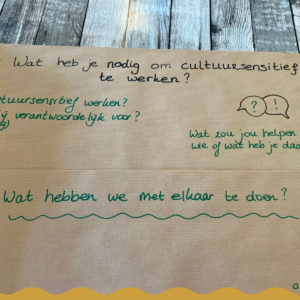 Wat heb je nodig om cultuursensitief
te werken?
tuursensitief werken?
verantwoordelijk voor?
? !
Wat zou jou helpen
wie of wat heb je daa
Wat hebben we met elkaar te doen?